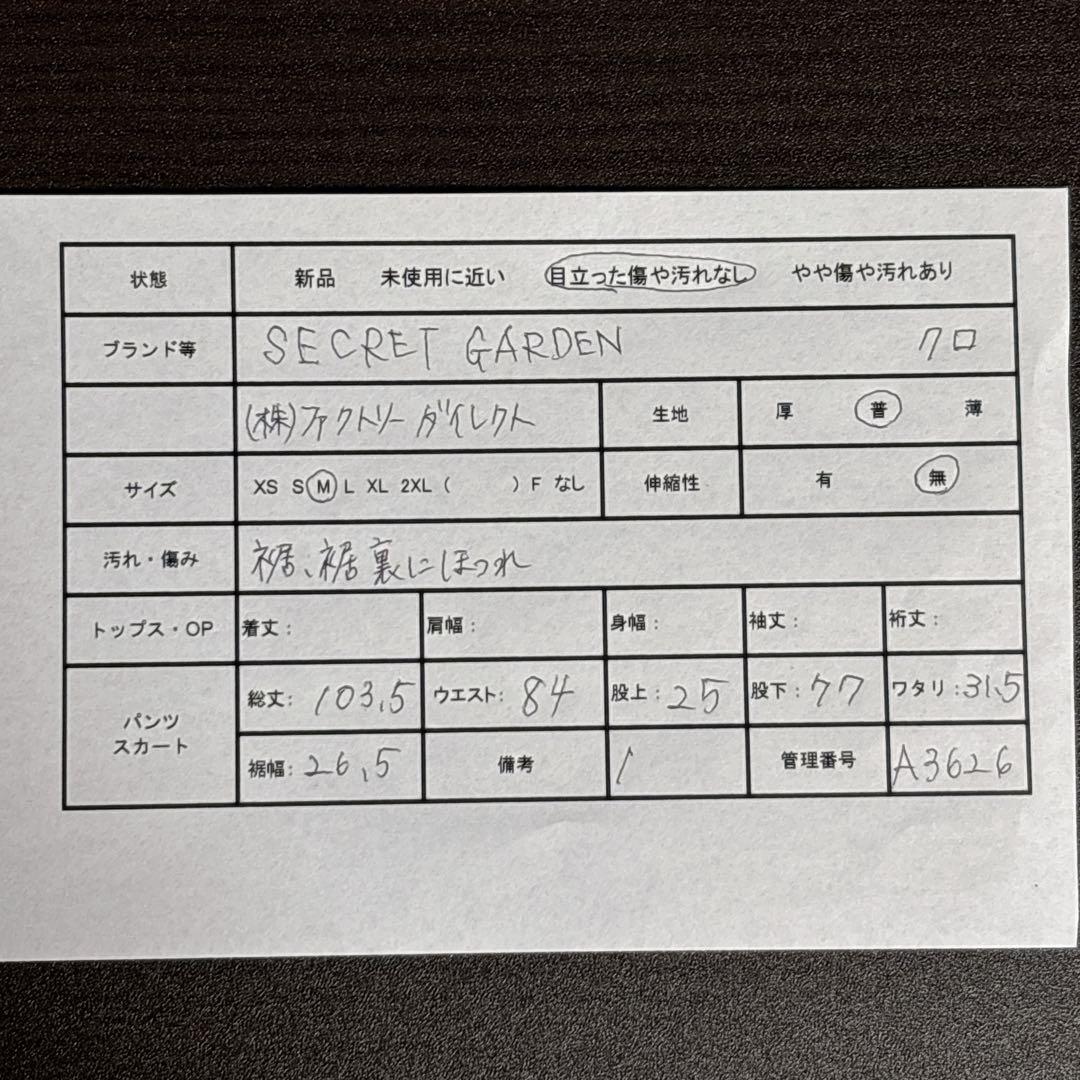 状態 新品 未使用に近い 目立った傷や汚れなし やや傷や汚れあり
ブランド等 SECRET GARDEN クロ
(株)ファクトリーダイレクト 生地 厚 普 薄
サイズ XS S M L XL 2XL ( ) F なし 伸縮性 有 無
汚れ・傷み 裾、裾裏にほつれ
トップス・OP 着丈: 肩幅: 身幅: 袖丈: 裄丈:
パンツ
スカート
総丈: 103.5 ウエスト: 84 股上: 25 股下: 77 ワタリ: 31.5
裾幅: 26.5 備考 / 管理番号 A3626